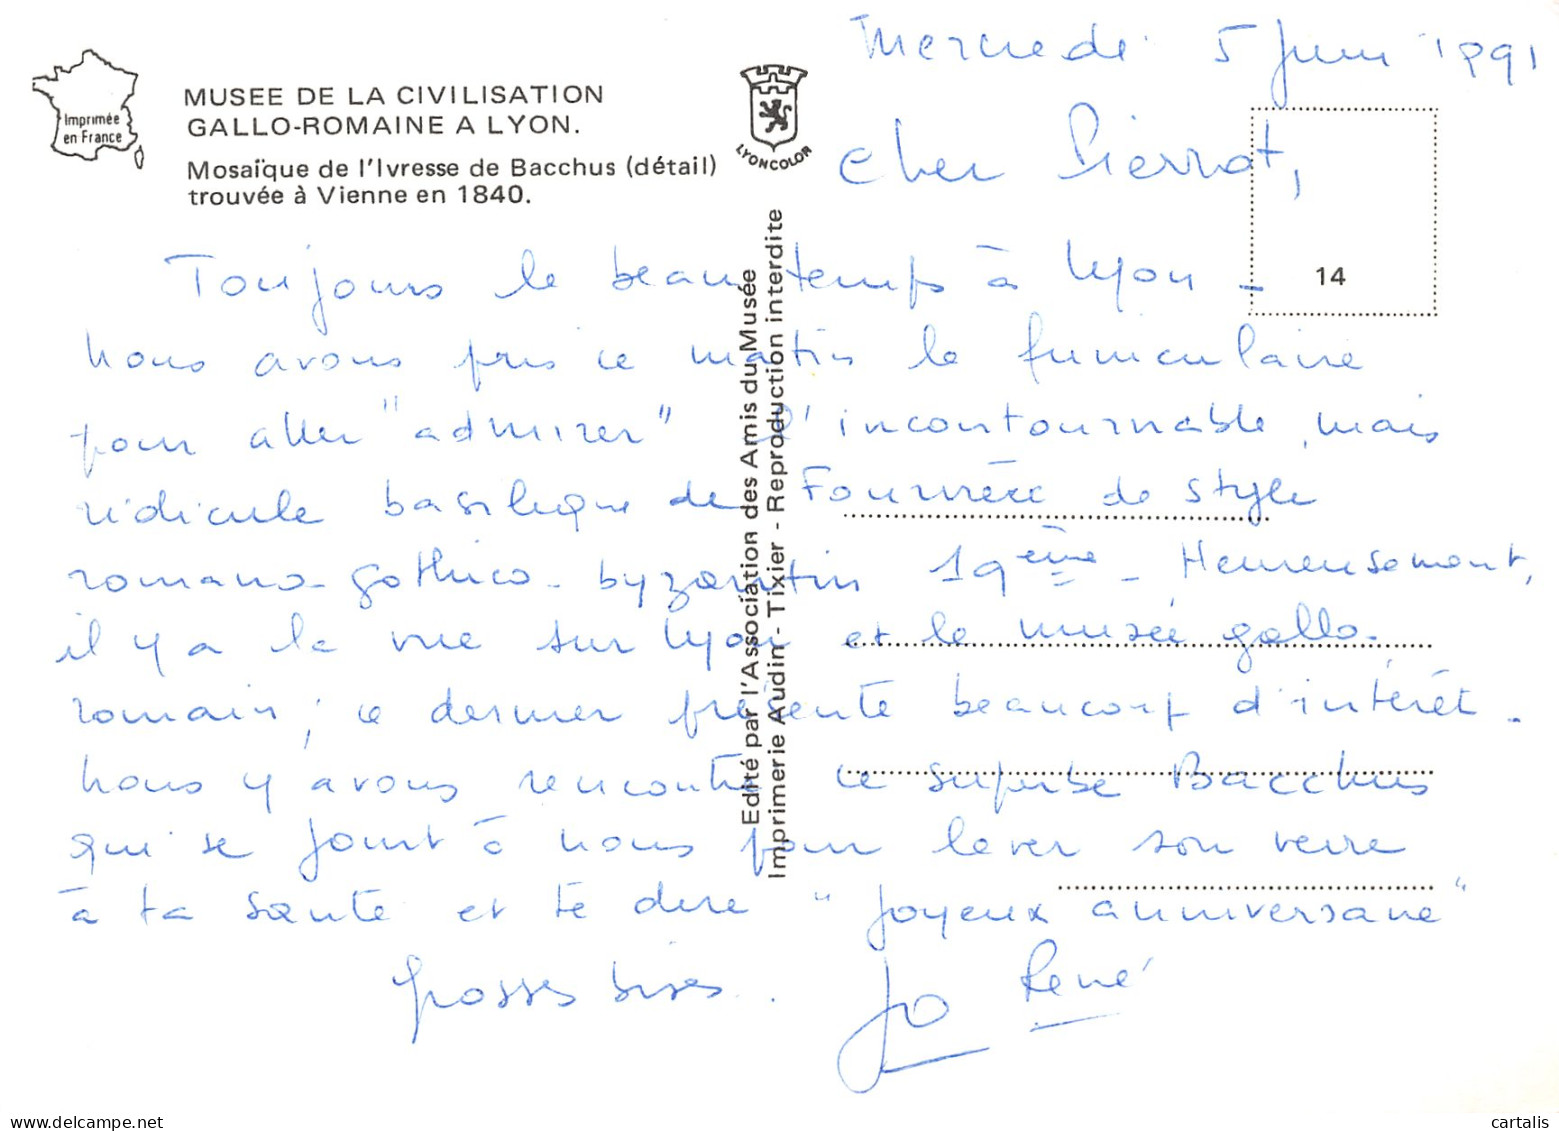 Mercredi 5 Juin 1991
Imprimée
en France
MUSEE DE LA CIVILISATION
GALLO-ROMAINE A LYON.
Mosaïque de l'Ivresse de Bacchus (détail)
trouvée à Vienne en 1840.
LYONCOLOR
Cher Pierrot,
14
Toujours le beau temps à Lyon -
Nous avons pris ce matin le funiculaire
pour aller "admirer" l'incontournable, mais
ridicule basilique de Fourvière de style
romano-gothico-byzantin 19ème - Heureusement,
il y a la vue sur Lyon et le musée gallo-
romain ; ce dernier présente beaucoup d'intérêt -
Nous y avons rencontré ce superbe Bacchus
qui se joint à nous pour lever son verre
à ta santé et te dire "Joyeux anniversaire"
Grosses bises.
Jo René
Edité par l'Association des Amis du Musée
Imprimerie Audin - Tixier - Reproduction interdite
cartalis